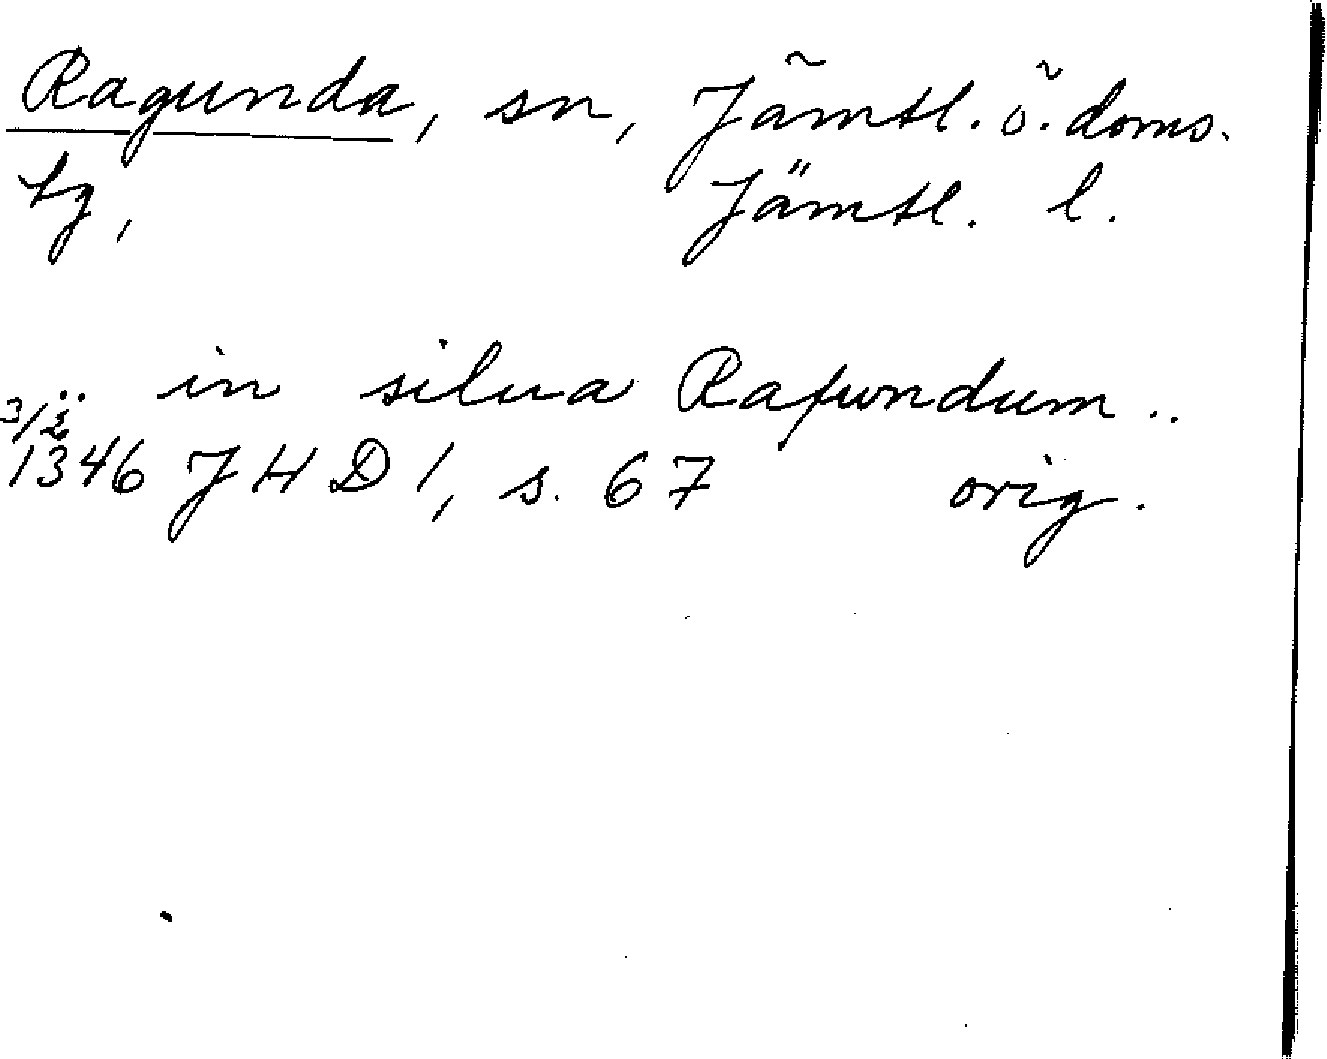 Ragunda, sn, Jämtl. ö. doms.
tg, Jämtl. l.
.. in silua Rafundum ..
3/2 1346 JHD 1, s. 67 orig.